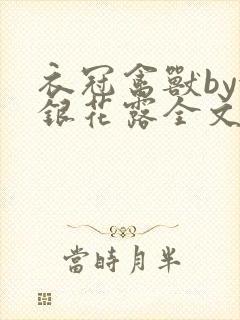 衣冠禽獸by
銀花露全文
當時月半